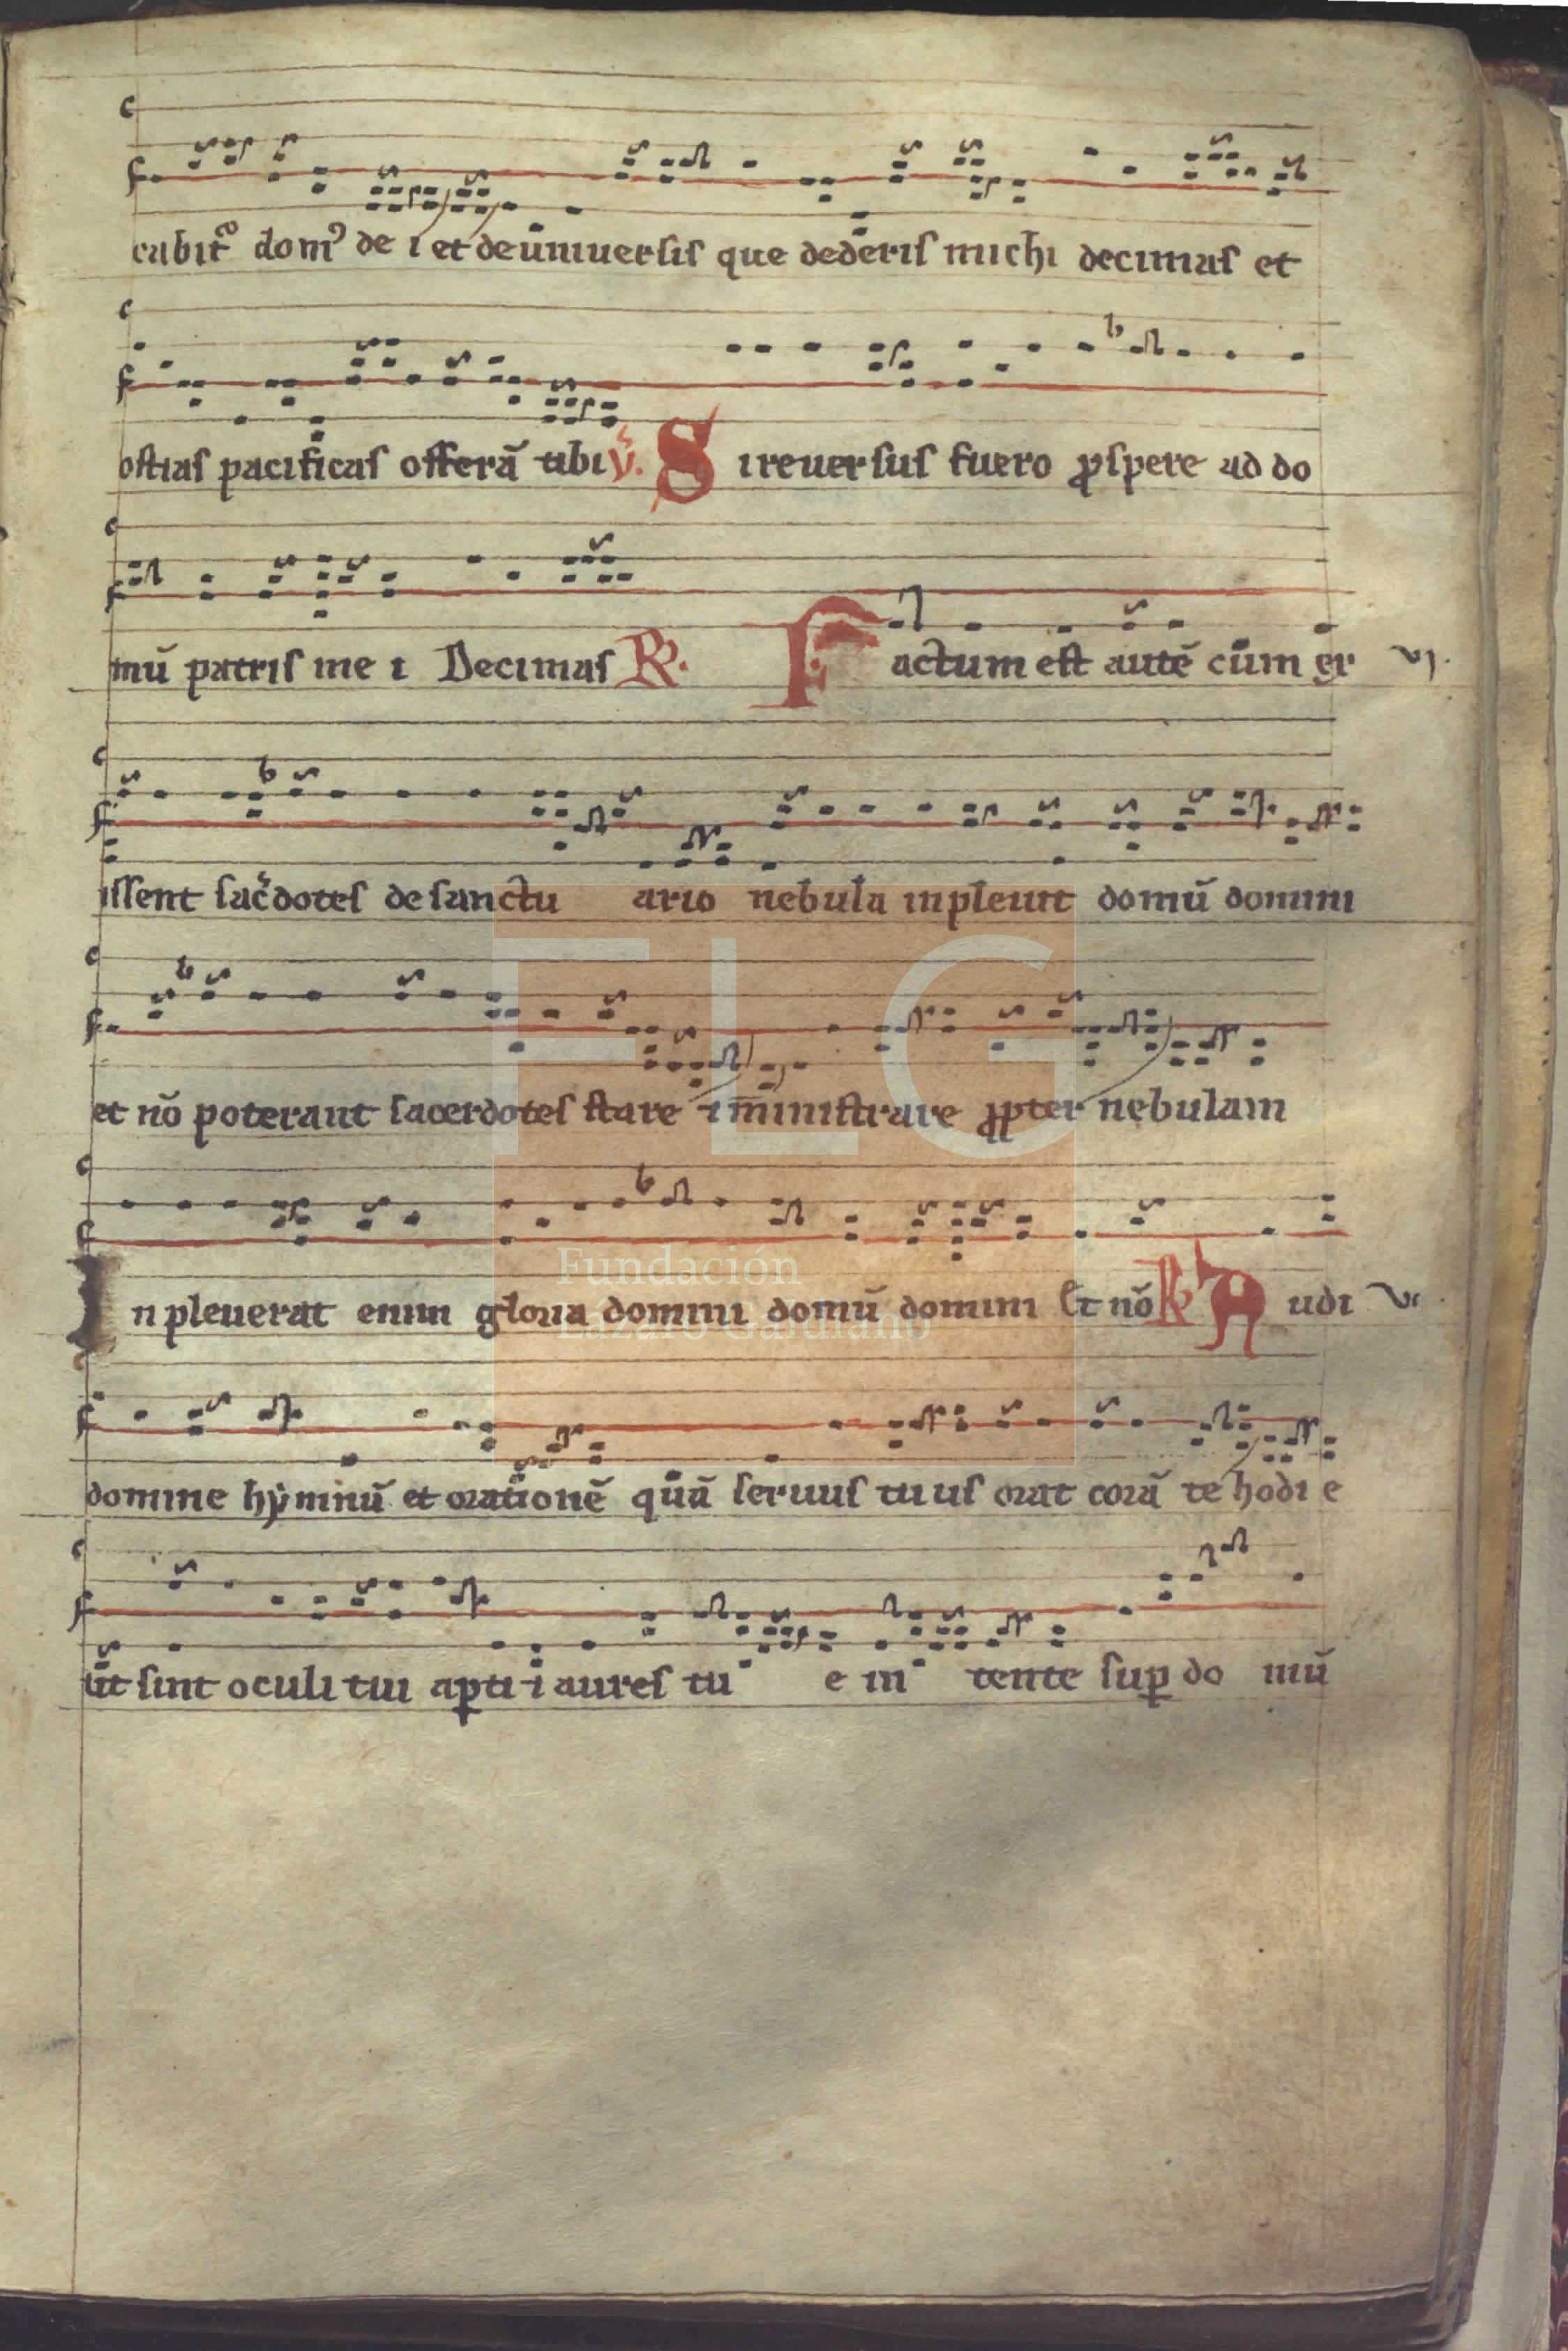 cabit᷒ domꝰ de i et de uniuersis que dederis michi decimas et
ostias pacificas offerã tibi ℣. Si reuersus fuero ꝓspere ad do
mũ patris me i Decimas ℟. Factum est autẽ cum gr vj.
issent sac̃dotes de sanctu ario nebula inpleuit domũ domini
et nõ poterant sacerdotes stare i m̄inistrare ꝓpter nebulam
In pleuerat enim gloria domini domũ domini Et nõ ℟ Audi vi
domine hẏmnũ et orationẽ quã seruus tuus orat corã te hodi e
ut sint oculi tui apti i aures tu e in tente suꝑ do mũ
FLG
Fundación
Lázaro Galdiano